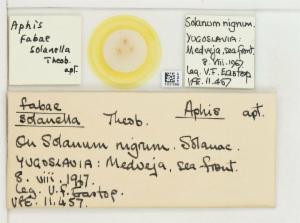 Aphis
fabae
solanella
Theob.
apt.
Solanum nigrum.
YUGOSLAVIA:
Medveja, sea front.
8. viii. 1967
Leg. V.F. Eastop
VFE. 11.457
fabae Aphis apt.
solanella Theob.
On Solanum nigrum. Solanac.
YUGOSLAVIA: Medveja, sea front.
8. viii. 1967.
Leg. V.F. Eastop.
VFE. 11.457.